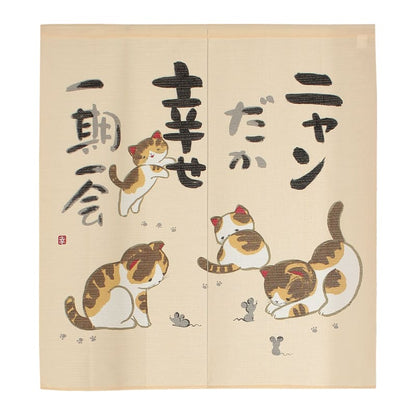 ニャン
だか
幸せ
一期一会